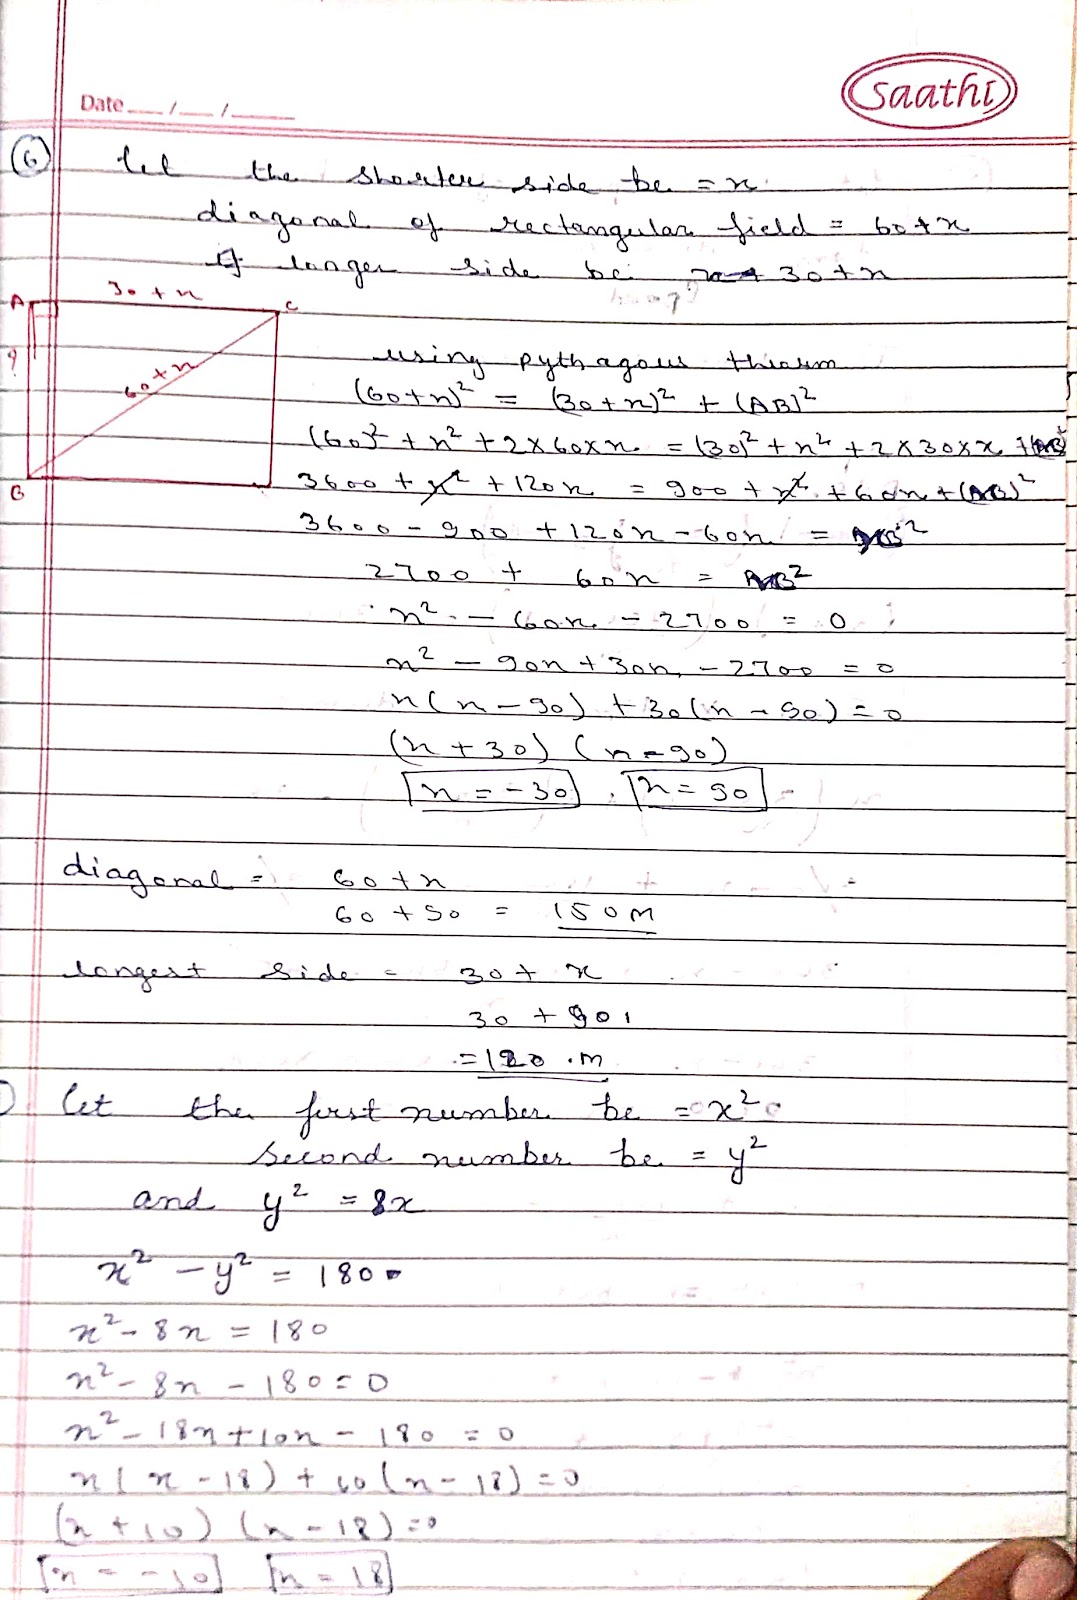 saathi
Date __/__/__
6 let the shorter side be = x
diagonal of rectangular field = 60+x
If longer side be 30+x
30+x
A
C
?
60+x
B
using pythagous thearm
(60+x)² = (30+x)² + (AB)²
(60)² + x² + 2×60×x = (30)² + x² + 2×30×x + (AB)²
3600 + x² + 120x = 900 + x² + 60x + (AB)²
3600 - 900 + 120x - 60x = AB²
2700 + 60x = AB²
x² - 60x - 2700 = 0
x² - 90x + 30x - 2700 = 0
x(x - 90) + 30(x - 90) = 0
(x + 30) (x - 90)
x = -30, x = 90
diagonal = 60+x
60 + 90 = 150 m
longest side = 30 + x
30 + 90
= 120 m
let the first number be = x²
second number be = y²
and y² = 8x
x² - y² = 180
x² - 8x = 180
x² - 8x - 180 = 0
x² - 18x + 10x - 180 = 0
x(x - 18) + 10(x - 18) = 0
(x + 10) (x - 18) = 0
x = -10 x = 18